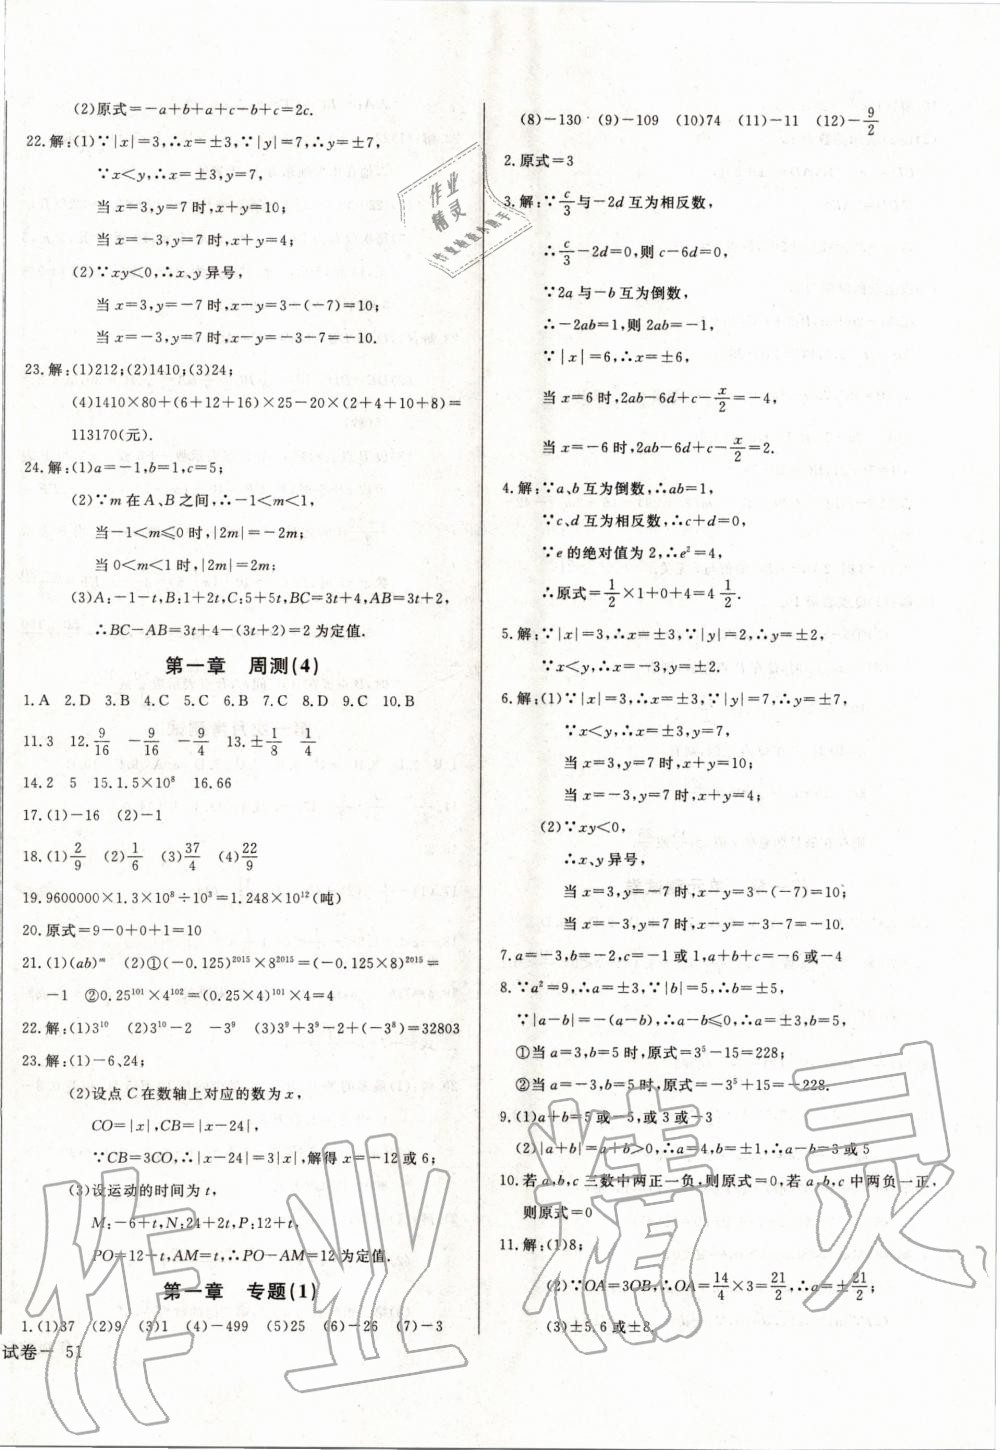 (2)原式=-a+b+a+c-b+c=2c.
22.解:(1)∵|x|=3,∴x=±3,∵|y|=7,∴y=±7,
∵x<y,∴x=±3,y=7,
当x=3,y=7时,x+y=10;
当x=-3,y=7时,x+y=4;
(2)∵xy<0,∴x、y异号,
当x=3,y=-7时,x-y=3-(-7)=10;
当x=-3,y=7时,x-y=-3-7=-10.
23.解:(1)212;(2)1410;(3)24;
(4)1410×80+(6+12+16)×25-20×(2+4+10+8)=
113170(元).
24.解:(1)a=-1,b=1,c=5;
(2)∵m在A、B之间,∴-1<m<1,
当-1<m≤0时,|2m|=-2m;
当0<m<1时,|2m|=2m;
(3)A:-1-t,B:1+2t,C:5+5t,BC=3t+4,AB=3t+2,
∴BC-AB=3t+4-(3t+2)=2为定值.
第一章 周测(4)
1.A 2.D 3.B 4.C 5.C 6.B 7.C 8.D 9.C 10.B
11.3 12.9/16 -9/16 -9/4 13.±1/8 1/4
14.2 5 15.1.5×10⁸ 16.66
17.(1)-16 (2)-1
18.(1)2/9 (2)1/6 (3)37/4 (4)22/9
19.9600000×1.3×10⁸÷10³=1.248×10¹²(吨)
20.原式=9-0+0+1=10
21.(1)(ab)ᵐ (2)①(-0.125)²⁰¹⁵×8²⁰¹⁵=(-0.125×8)²⁰¹⁵=
-1 ②0.25¹⁰¹×4¹⁰²=(0.25×4)¹⁰¹×4=4
22.解:(1)3¹⁰ (2)3¹⁰-2 -3⁹ (3)3⁹+3⁹-2+(-3⁸)=32803
23.解:(1)-6、24;
(2)设点C在数轴上对应的数为x,
CO=|x|,CB=|x-24|,
∵CB=3CO,∴|x-24|=3|x|,解得x=-12或6;
(3)设运动的时间为t,
M:-6+t,N:24+2t,P:12+t,
PO=12+t,AM=t,∴PO-AM=12为定值.
第一章 专题(1)
1.(1)37 (2)9 (3)1 (4)-499 (5)25 (6)-26 (7)-3
试卷－51
(8)-130 (9)-109 (10)74 (11)-11 (12)-9/2
2.原式=3
3.解:∵c/3与-2d互为相反数,
∴c/3-2d=0,则c-6d=0,
∵2a与-b互为倒数,
∴-2ab=1,则2ab=-1,
∵|x|=6,∴x=±6,
当x=6时,2ab-6d+c-x/2=-4,
当x=-6时,2ab-6d+c-x/2=2.
4.解:∵a、b互为倒数,∴ab=1,
∵c、d互为相反数,∴c+d=0,
∵e的绝对值为2,∴e²=4,
∴原式=1/2×1+0+4=4 1/2.
5.解:∵|x|=3,∴x=±3,∵|y|=2,∴y=±2,
∵x<y,∴x=-3,y=±2.
6.解:(1)∵|x|=3,∴x=±3,∵|y|=7,∴y=±7,
∵x<y,∴x=±3,y=7,
当x=3,y=7时,x+y=10;
当x=-3,y=7时,x+y=4;
(2)∵xy<0,
∴x、y异号,
当x=3,y=-7时,x-y=3-(-7)=10;
当x=-3,y=7时,x-y=-3-7=-10.
7.a=-3,b=-2,c=-1或1,a+b+c=-6或-4
8.∵a²=9,∴a=±3,∵|b|=5,∴b=±5,
∵|a-b|=-(a-b),∴a-b≤0,∴a=±3,b=5,
①当a=3,b=5时,原式=3⁵-15=228;
②当a=-3,b=5时,原式=-3⁵+15=-228.
9.(1)a+b=5或-5,或3或-3
(2)|a+b|=a+b>0,∴a=4,b=±1,∴a-b=3或5
10.若a,b,c三数中两正一负,则原式=0,若a,b,c中两负一正,
则原式=0
11.解:(1)8;
(2)∵OA=3OB,∴OA=14/4×3=21/2,∴a=±21/2;
(3)±5,6或±8.
作业
精灵
作业检查小助手
作业精灵